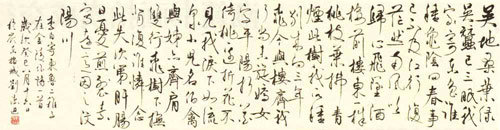 吳地桑葉綠
吳蠶已三眠我
家寄東魯誰
種龜陰田春事
已不及江行復
茫然南風吹
歸心飛墮酒
樓前樓東一株
桃枝葉拂青
煙此樹我所種
別來向三年桃
今與樓齊我
行尚未旋嬌女
字平陽折花
倚桃邊折花不
見我淚下如流
泉小兒名伯禽
與姊亦齊肩
雙行桃樹下撫
背復誰憐念
此失次第肝腸
日憂煎裂素
寫遠意因之汶
陽川
李白寄東魯二稚子